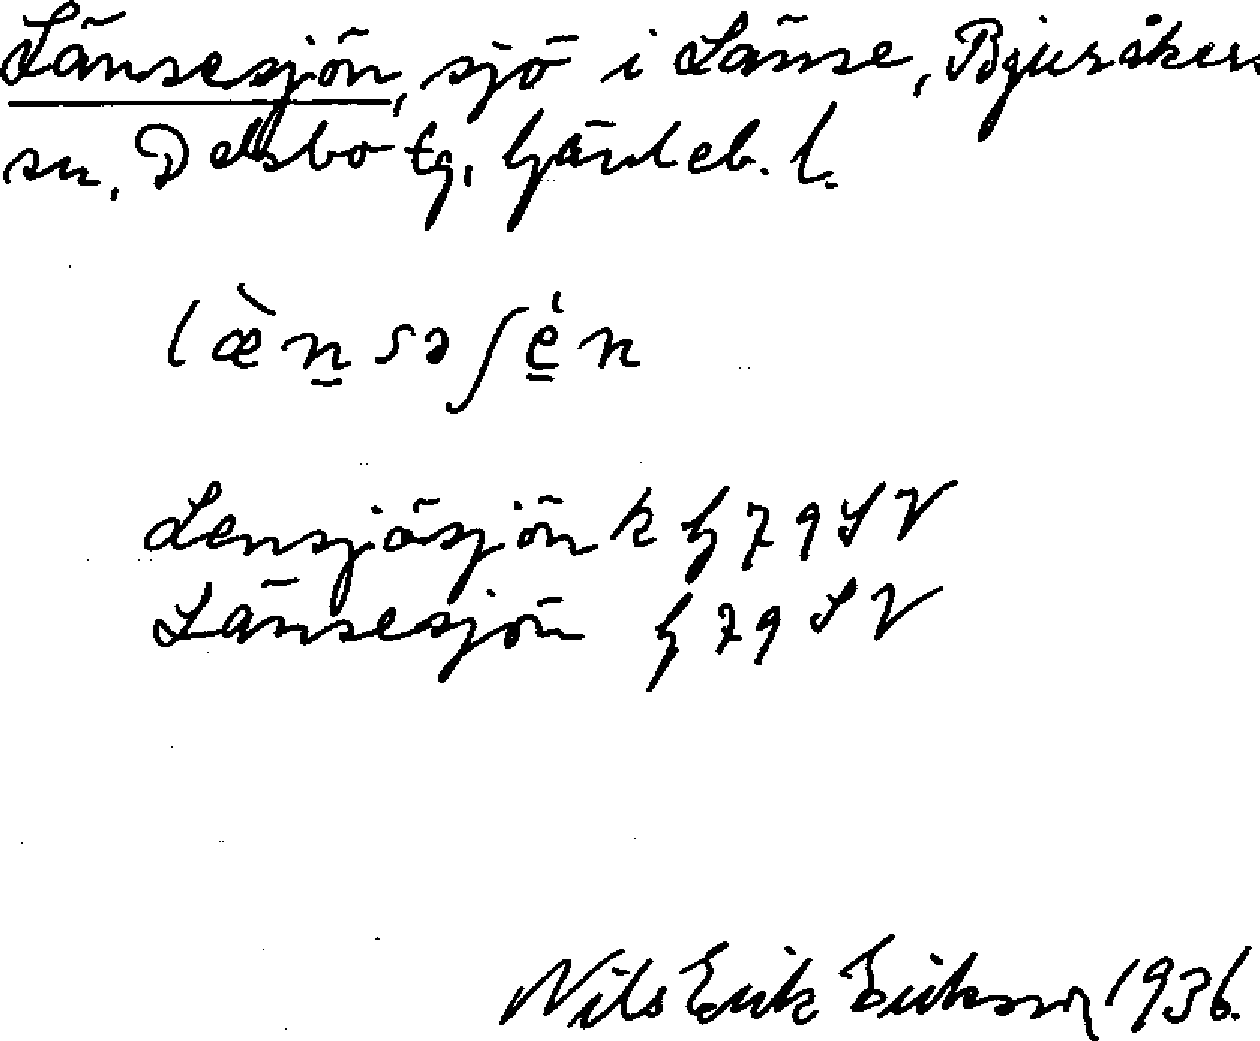 Länsesjön, sjö i Länse, Bjuråkers
sn, Delsbo tg, Gävleb. l.
læ̀nsəʃén
Lensjösjön k G 79 SV
Länsesjön G 79 SV
Nils Erik Eriksson 1936.